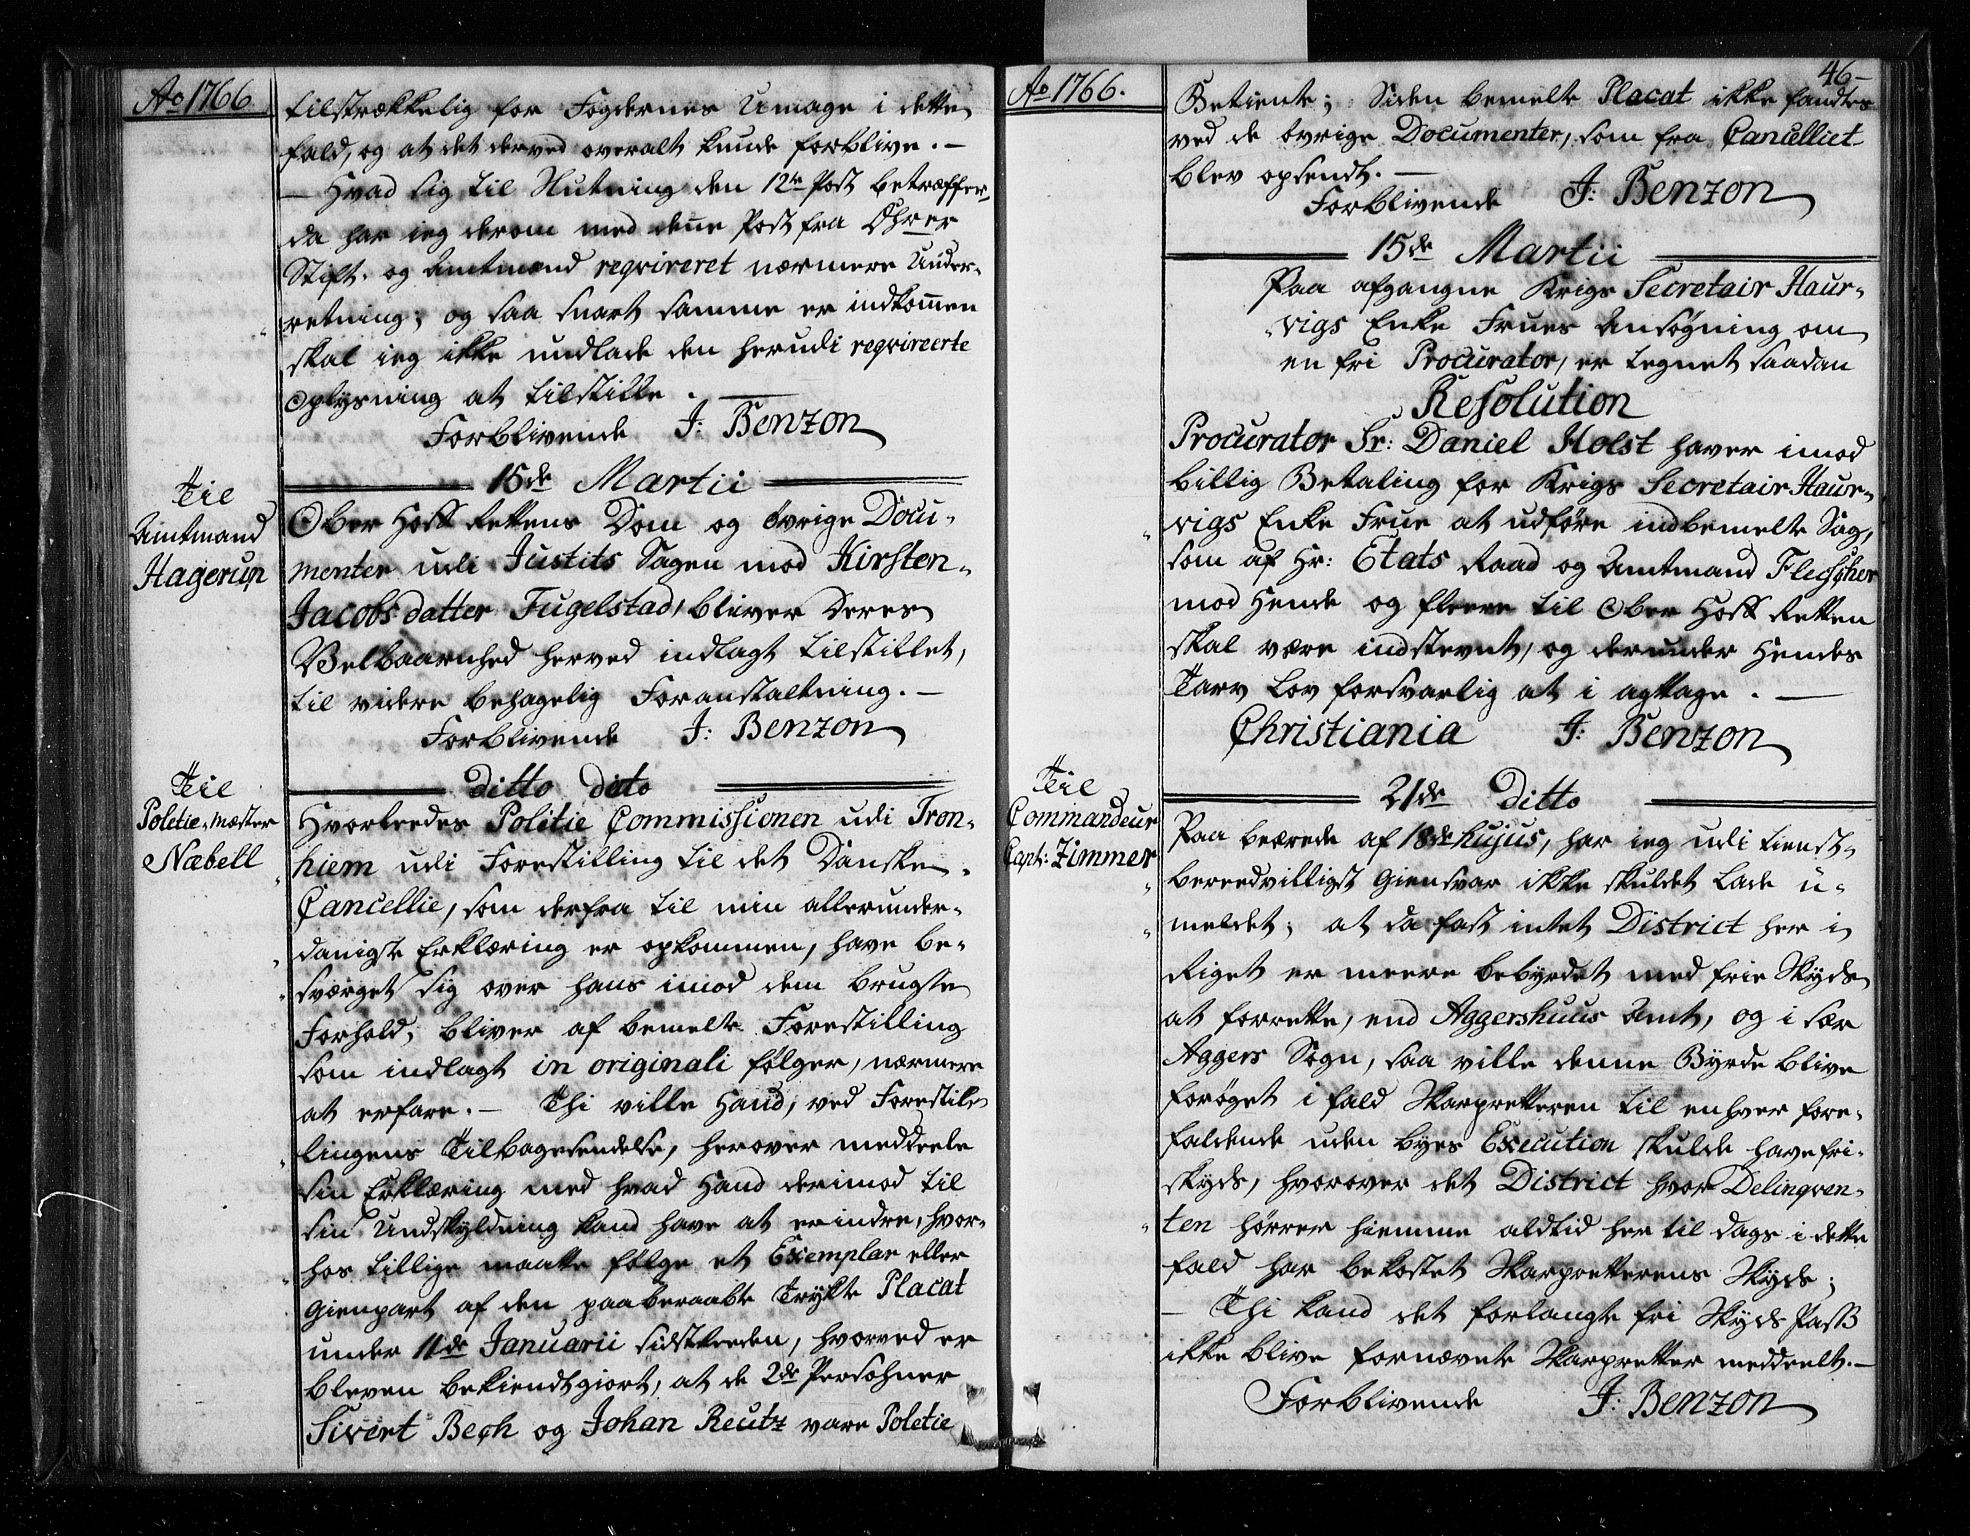 Ao 1766.
tilstrækkelig for Fogdernes Umage i dette
fald, og at det derved overalt kunde forblive. –
– Hvad sig til Slutning den 12te Post betræffer,
da har ieg derom med deñe Post fra Øhrer
Stift- og Amtmænd reqvireret nærmere Under-
retning; og saa snart samme er indkom̃en
skal ieg ikke undlade den herudi reqvireerte
Oplysning at tilstille.
Forblivende J: Benzon
15de Martii
Til
Amtmand
Hagerup
Ober Hoff Rettens Dom og øvrige Docu-
menter udi Justits Sagen mod Kirsten
Jacobsdatter Fugelstad, bliver Deres
Velbaarnhed herved indlagt tilstillet,
til videre behagelig Foranstaltning. –
Forblivende J: Benzon
ditto dito
Til
Politie-mæster
Næbell
Hvorledes Politie Commissionen udi Tron-
hiem udi Forestilling til det Danske
Cancellie, som derfra til min allerunder-
danigste Erklæring er opkommen, have be-
sværget sig over hans imod dem brugte
Forhold, bliver af bemelte Forestilling
som indlagt in originali følger, nærmere
at erfare. – Thi ville Hand, ved Forestil-
lingens Tilbagesendelse, herover meddeele
sin Erklæring med hvad Hand derimod til
sin Undskyldning kand have at erindre, hvor-
hos tillige maatte følge et Exemplar eller
Gienpart af den paaberaabte Trykte Placat
under 11de Januarii sidstleeden, hvorved er
bleven bekiendtgiort, at de 2de Persohner
Sivert Bech og Johan Reutz vare Poletie
46–
Ao 1766.
Betiente; Siden bemelte Placat ikke fandtes
ved de øvrige Documenter, som fra Cancelliet
blev opsendt. –
Forblivende J: Benzon
15de Martii
Paa afgangne Krigs Secretair Haur-
vigs Enke Frues Ansøgning om
en fri Procurator, er tegnet saadan
Resolution
Procurator Sr: Daniel Holst haver imod
billig Betaling for Krigs Secretair Haur-
vigs Enke Frue at udføre indbemelte Sag,
som af Hr: Etats Raad og Amtmand Fleischer
mod Hende og fleere til Ober Hoff Retten
skal være indstevnt, og derunder Hendes
Tarv Lov forsvarlig at i agttage. –
Christiania J: Benzon
21de Ditto
Til
Commandeur
Capt: Zimmer
Paa beærede af 18de hujus, har ieg udi tienst-
beredvilligst Giensvar ikke skuldet lade u-
meldet; at da fast intet District her i
Riget er meere bebyrdet med frie Skyds
at forrette, end Aggershuus Amt, og i sær
Aggers Sogn, saa ville denne Byrde blive
forøget i fald Skarpretteren til enhver fore-
faldende uden byes Execution skulde have fri-
skyds, hvorover det District hvor Delinqven-
ten hører hiemme altid her til dags i dette
fald har bekostet Skarpretterens Skyds;
– Thi kand det forlangte fri Skyds Pass
ikke blive fornævnte Skarpretter meddeelt. –
Forblivende J: Benzon